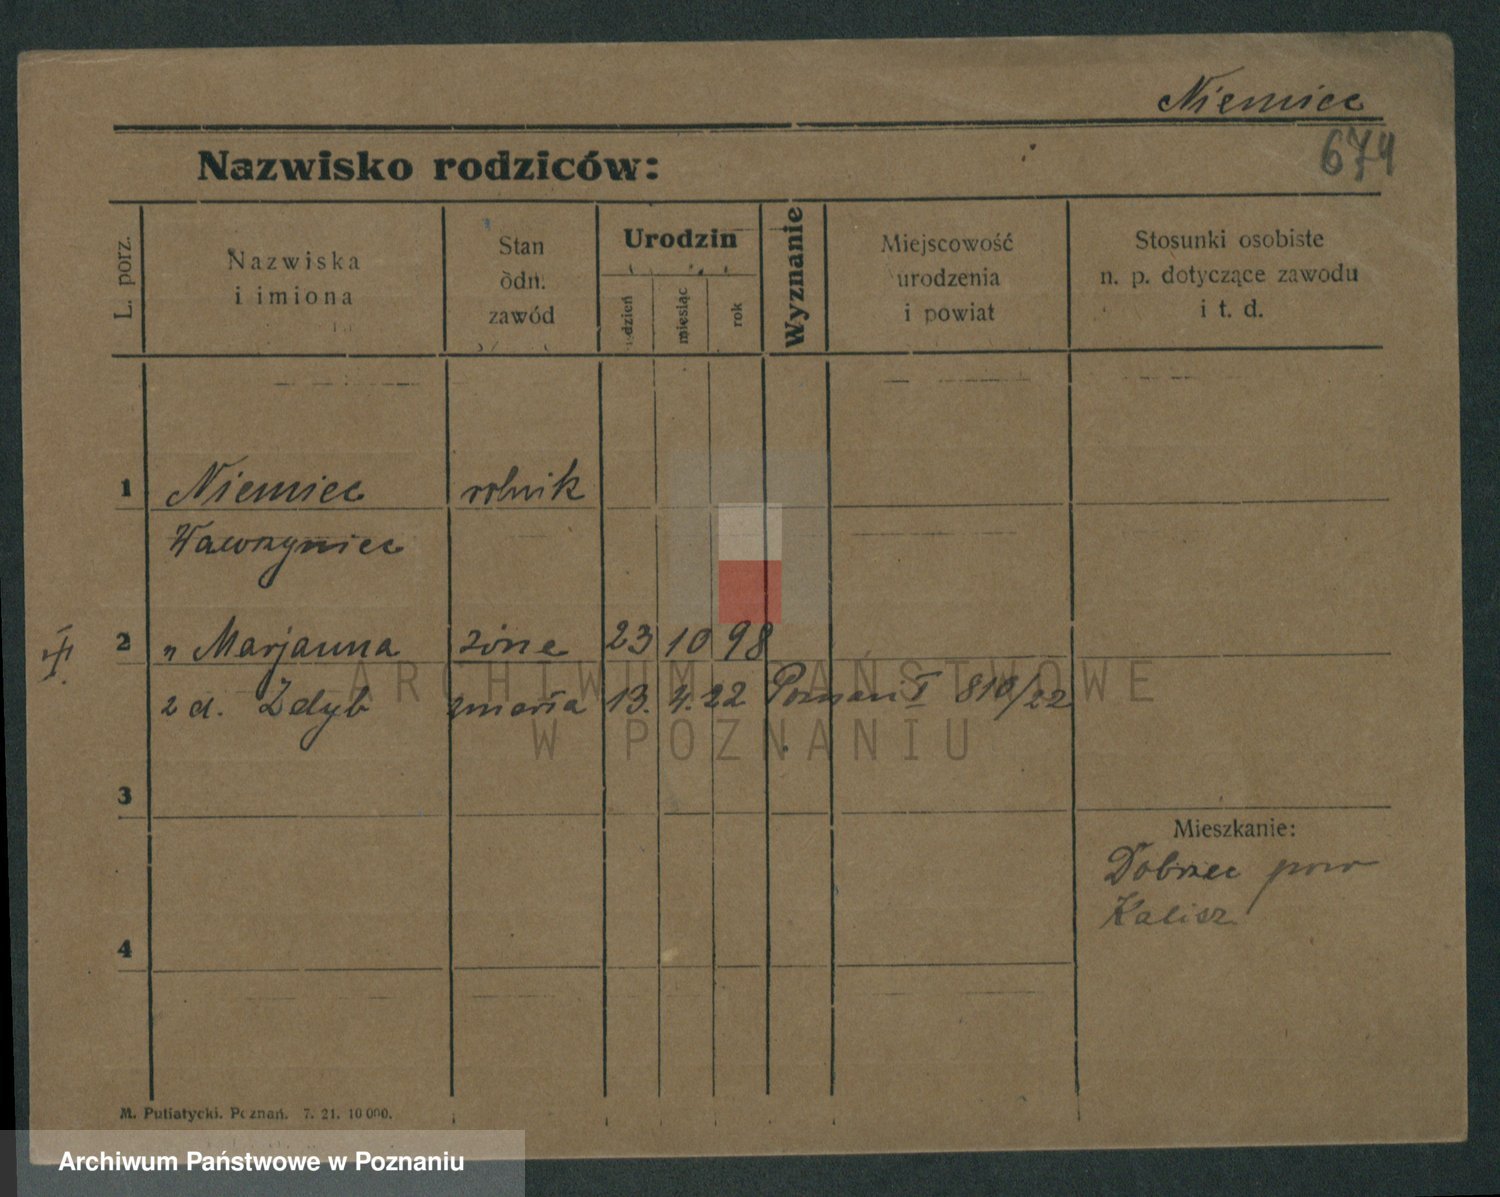 Niemiec
674
Nazwisko rodziców:
L. porz.
Nazwiska
i imiona
Stan
odn.
zawód
Urodzin
dzień
miesiąc
rok
Wyznanie
Miejscowość
urodzenia
i powiat
Stosunki osobiste
n. p. dotyczące zawodu
i t. d.
1 Niemiec rolnik
Wawrzyniec
2 " Marjanna żona 23 10 98
z d. Zdyb zmarła 13. 4. 22 Poznań I 810/22
ARCHIWUM PAŃSTWOWE
W POZNANIU
3
Mieszkanie:
Dobrzec pow
Kalisz
4
M. Putiatycki. Poznań. 7. 21. 10 000.
Archiwum Państwowe w Poznaniu